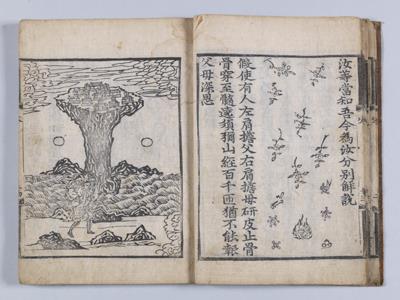 汝等當知吾今為汝分別解說
假使有人左肩擔父右肩擔母研皮至骨
骨穿至髓遶須彌山經百千匝猶不能報
父母深恩